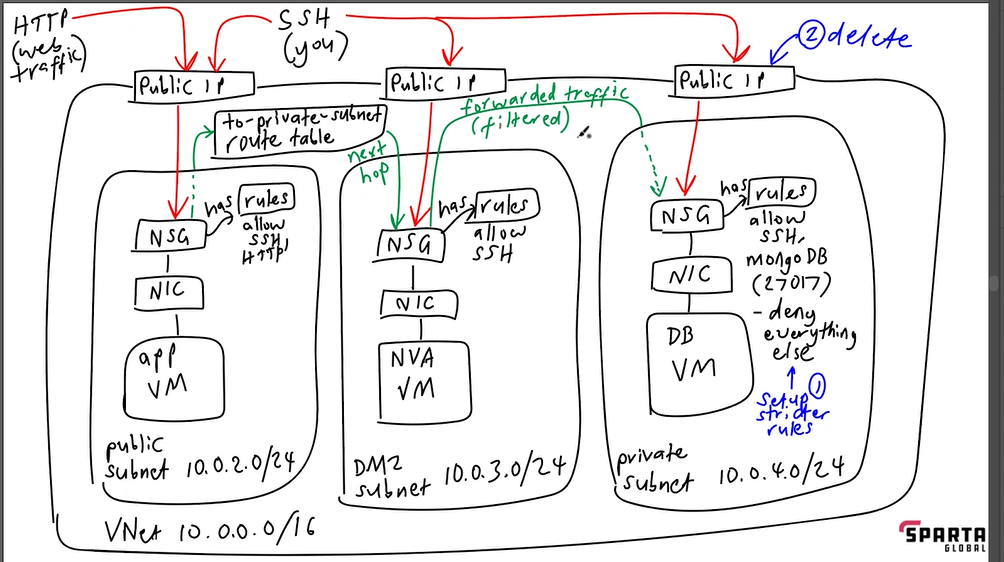 HTTP
(web
traffic)
SSH
(you)
② delete
Public IP
Public IP
Public IP
to-private-subnet
route table
next
hop
forwarded traffic
(filtered)
NSG
has
rules
allow
SSH,
HTTP
NIC
app
VM
public
subnet 10.0.2.0/24
NSG
has
rules
allow
SSH
NIC
NVA
VM
DMZ
subnet 10.0.3.0/24
NSG
has
rules
allow
SSH,
mongoDB
(27017)
- deny
everything
else
NIC
DB
VM
① setup
stricter
rules
private
subnet 10.0.4.0/24
VNet 10.0.0.0/16
SPARTA
GLOBAL